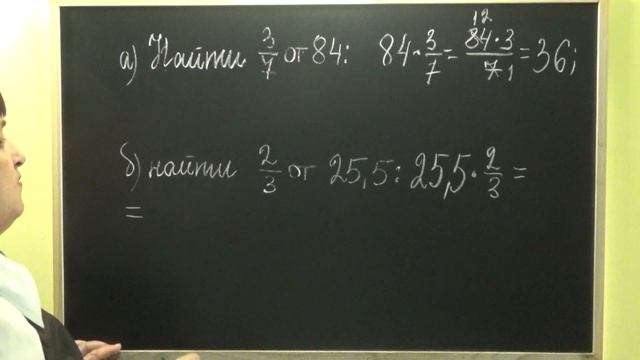 а) Найти 3/7 от 84: 84 · 3/7 = 84 · 3/7 = 36;
12
1
б) найти 2/3 от 25,5: 25,5 · 2/3 =
=